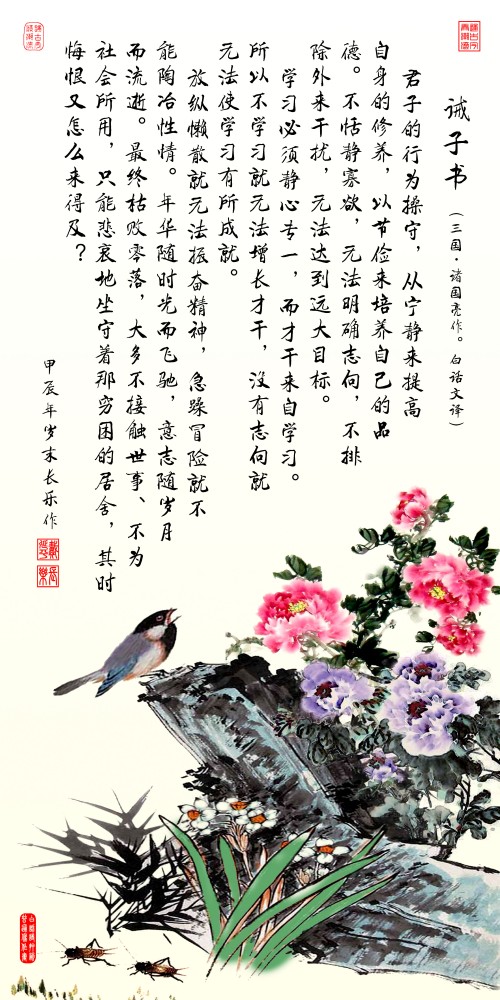 诫子书
（三国·诸国亮作。白话文译）
君子的行为操守，从宁静来提高
自身的修养，以节俭来培养自己的品
德。不恬静寡欲，无法明确志向，不排
除外来干扰，无法达到远大目标。
学习必须静心专一，而才干来自学习。
所以不学习就无法增长才干，没有志向就
无法使学习有所成就。
放纵懒散就无法振奋精神，急躁冒险就不
能陶冶性情。年华随时光而飞驰，意志随岁月
而流逝。最终枯败零落，大多不接触世事、不为
社会所用，只能悲哀地坐守着那穷困的居舍，其时
悔恨又怎么来得及？
甲辰年岁末长乐作